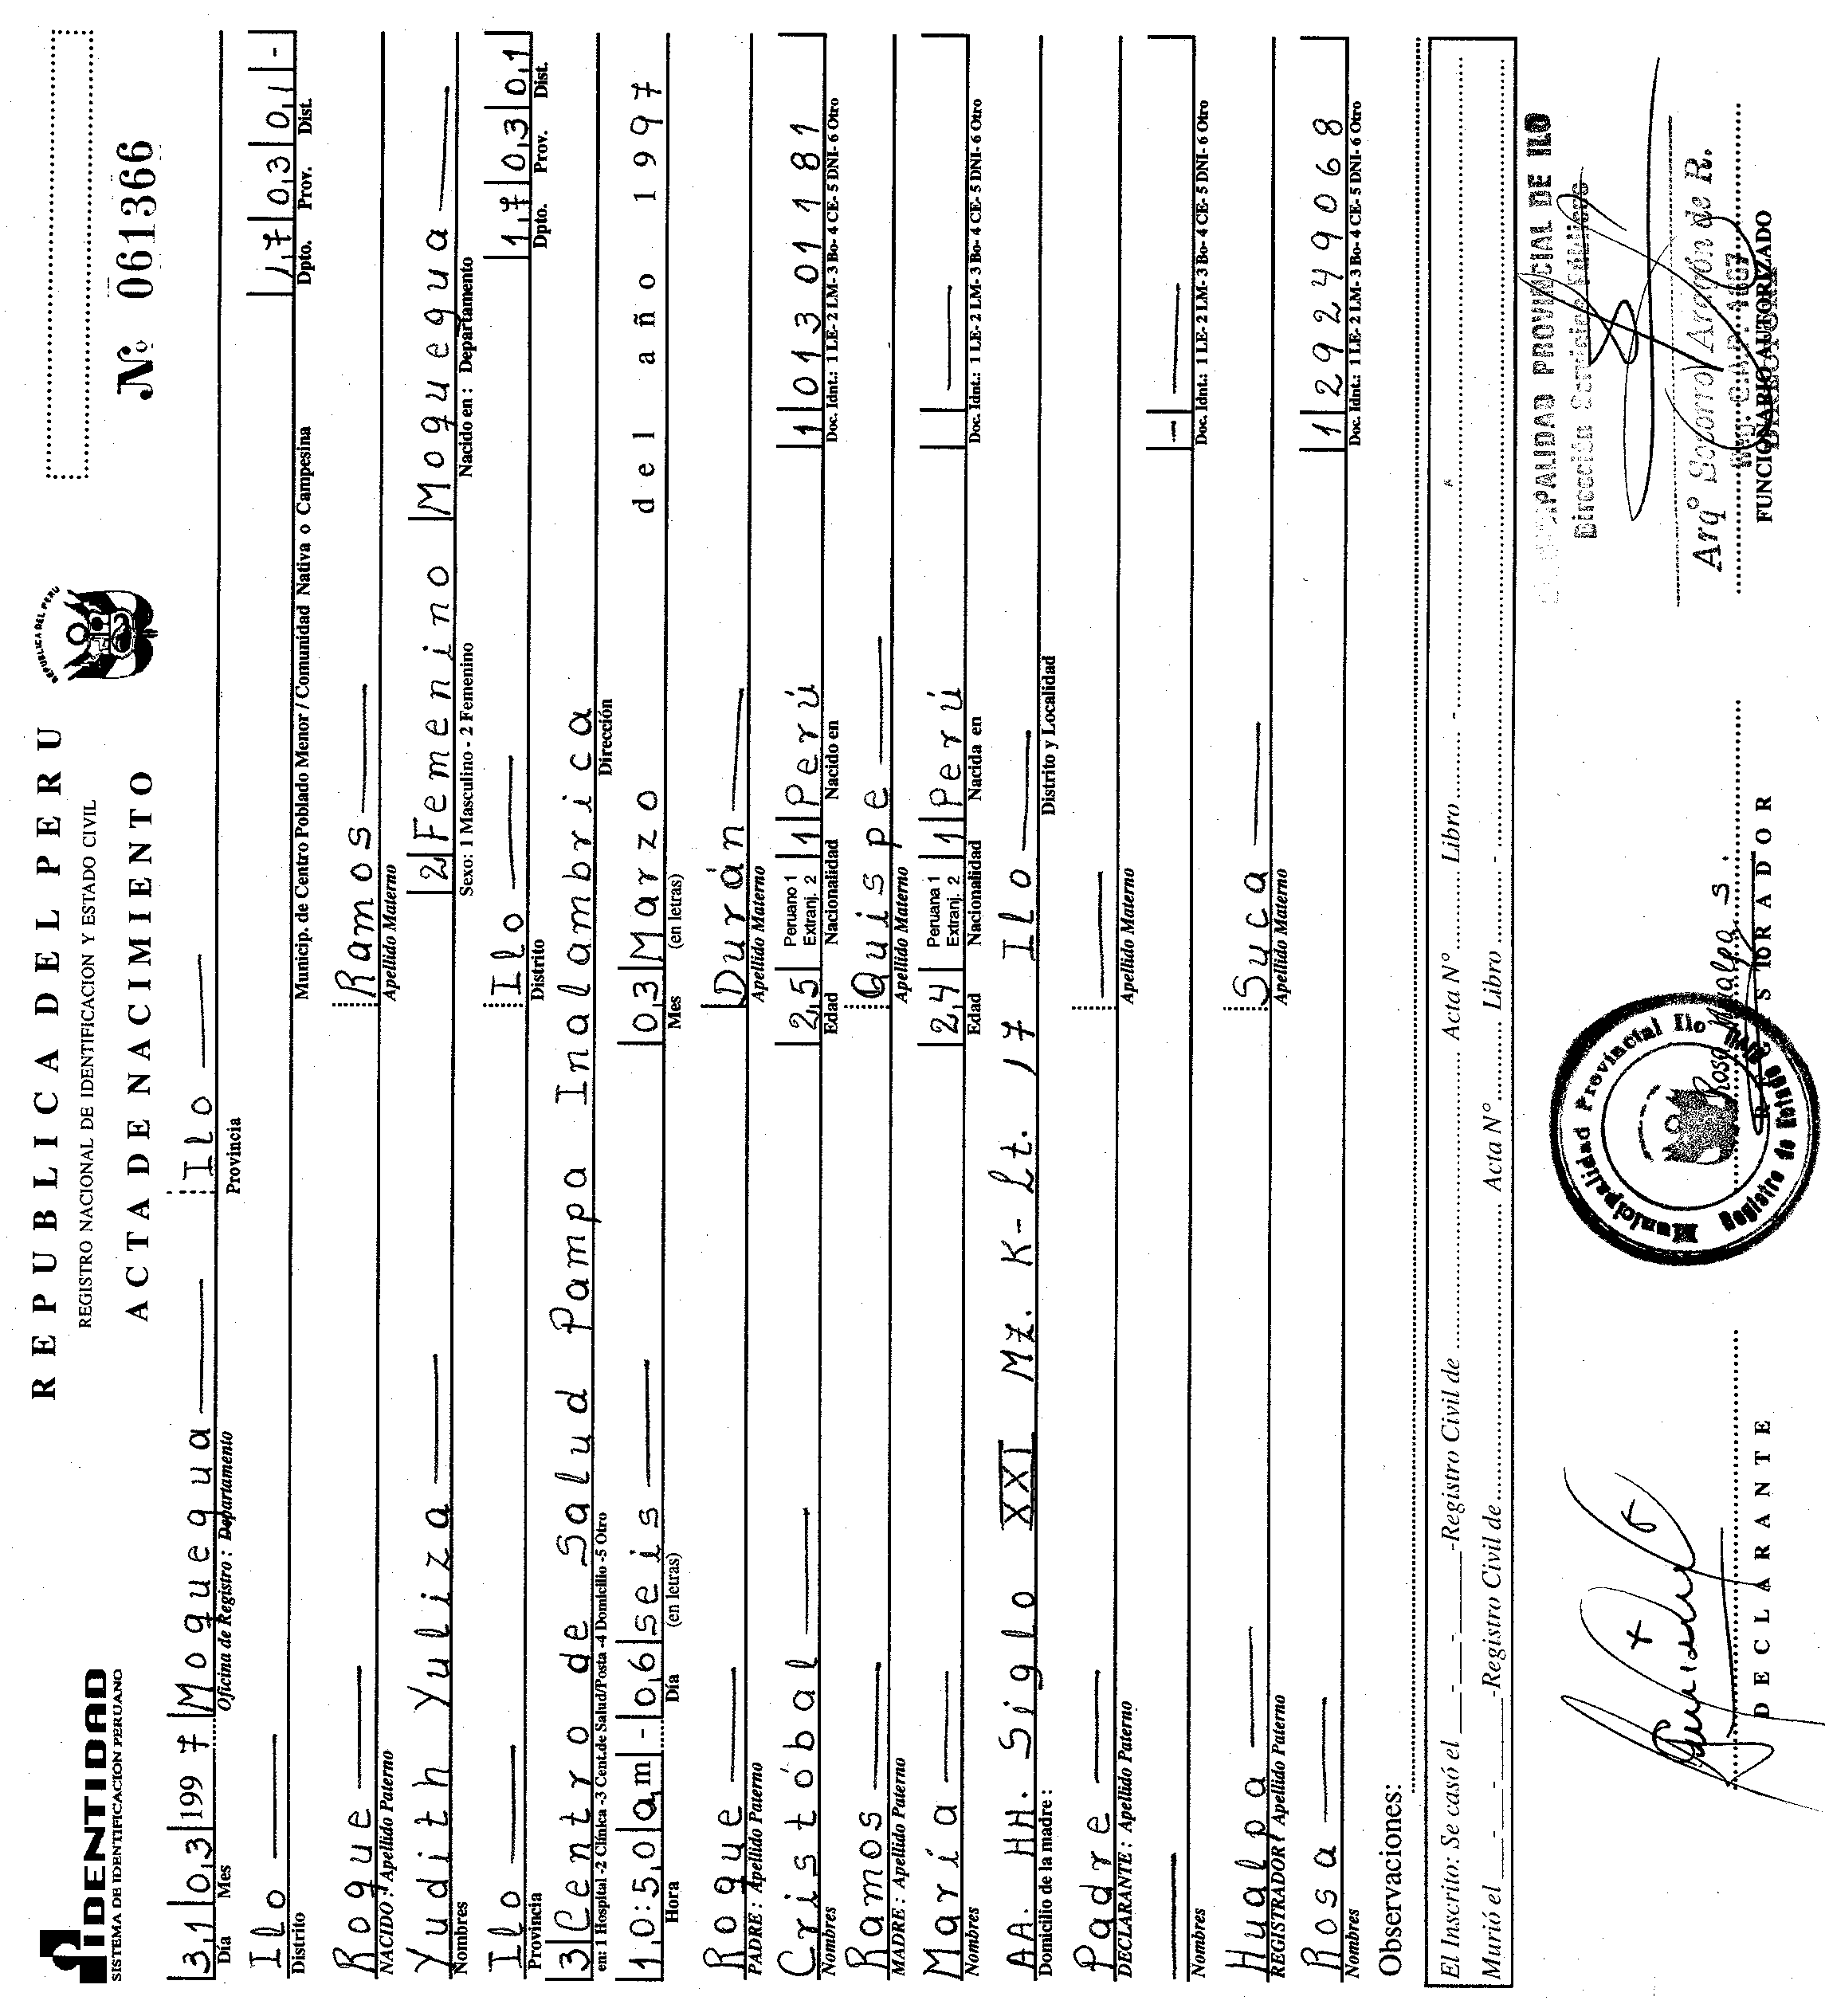 IDENTIDAD
SISTEMA DE IDENTIFICACION PERUANO
REPUBLICA DEL PERU
REGISTRO NACIONAL DE IDENTIFICACION Y ESTADO CIVIL
ACTA DE NACIMIENTO
REPUBLICA DEL PERU
Nº 061366
31 03 1997 Moquegua Ilo
Día Mes Oficina de Registro : Departamento Provincia
Ilo 17 03 01 -
Distrito Municip. de Centro Poblado Menor / Comunidad Nativa o Campesina Dpto. Prov. Dist.
Roque Ramos
NACIDO : Apellido Paterno Apellido Materno
Yudith Yuliza 2 Femenino Moquegua
Nombres Sexo: 1 Masculino - 2 Femenino Nacido en : Departamento
Ilo Ilo 17 03 01
Provincia Distrito Dpto. Prov. Dist.
3 Centro de Salud Pampa Inalambrica
en: 1 Hospital -2 Clínica -3 Cent.de Salud/Posta -4 Domicilio -5 Otro Dirección
10:50 am - 06 seis 03 Marzo del año 1997
Hora Día (en letras) Mes (en letras)
Roque Durán
PADRE : Apellido Paterno Apellido Materno
Cristóbal 25 Peruano 1 Extranj. 2 1 Perú 1 01301181
Nombres Edad Nacionalidad Nacido en Doc. Idnt.: 1 LE- 2 LM- 3 Bo- 4 CE- 5 DNI- 6 Otro
Ramos Quispe
MADRE : Apellido Paterno Apellido Materno
María 24 Peruana 1 Extranj. 2 1 Perú
Nombres Edad Nacionalidad Nacida en Doc. Idnt.: 1 LE- 2 LM- 3 Bo- 4 CE- 5 DNI- 6 Otro
AA. HH. Siglo XXI Mz. K- Lt. 17 Ilo
Domicilio de la madre : Distrito y Localidad
Padre
DECLARANTE : Apellido Paterno Apellido Materno
-
Nombres Doc. Idnt.: 1 LE- 2 LM- 3 Bo- 4 CE- 5 DNI- 6 Otro
Hualpa Suca
REGISTRADOR : Apellido Paterno Apellido Materno
Rosa 1 29249068
Nombres Doc. Idnt.: 1 LE- 2 LM- 3 Bo- 4 CE- 5 DNI- 6 Otro
Observaciones:
El Inscrito: Se casó el - - -Registro Civil de Acta Nº Libro -
Murió el - - -Registro Civil de Acta Nº Libro -
PALIDAD PROVINCIAL DE ILO
Dirección Servicios Públicos
Municipalidad Provincial Ilo
Registro de Estado Civil
Rosa Hualpa S.
Arqº Socorro Aragón de R.
DECLARANTE REGISTRADOR FUNCIONARIO AUTORIZADO